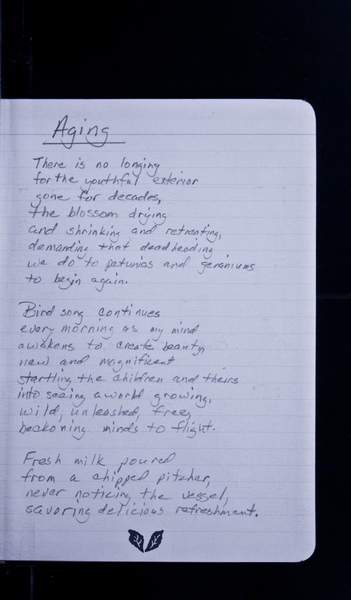 Aging
There is no longing
for the youthful exterior
gone for decades,
the blossom drying
and shrinking and retreating,
demanding that deadheading
we do to petunias and geraniums
to begin again.
Bird song continues
every morning as my mind
awakens to create beauty,
new and magnificent
startling the children and theirs
into seeing a world growing,
wild, unleashed, free,
beckoning minds to flight.
Fresh milk poured
from a chipped pitcher,
never noticing the vessel,
savoring delicious refreshment.